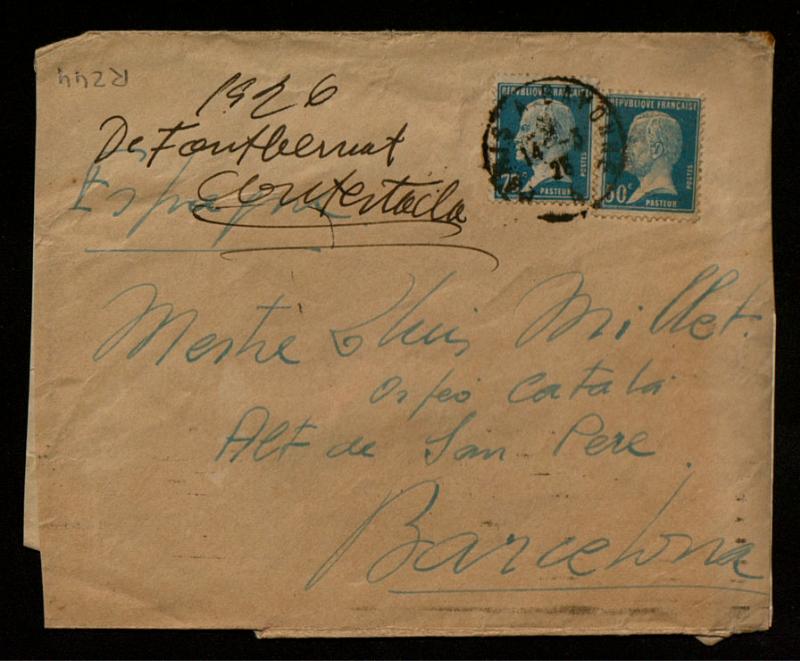 R244
1926
De Fontbernat
Contestada
España
REPVBLIQUE FRANÇAISE
75c
POSTES
PASTEUR
REPVBLIQUE FRANÇAISE
50c
POSTES
PASTEUR
14 -3
Mestre Lluis Millet.
Orfeó Català
Alt de San Pere.
Barcelona